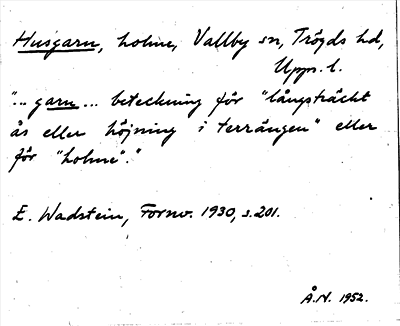 Husgarn, holme, Vallby sn, Trögds hd,
Upp. l.
"... garn ... beteckning för "långsträckt
ås eller höjning i terrängen" eller
för "holme"."
E. Wadstein, Fornv. 1930, s. 201.
Å.N. 1952.